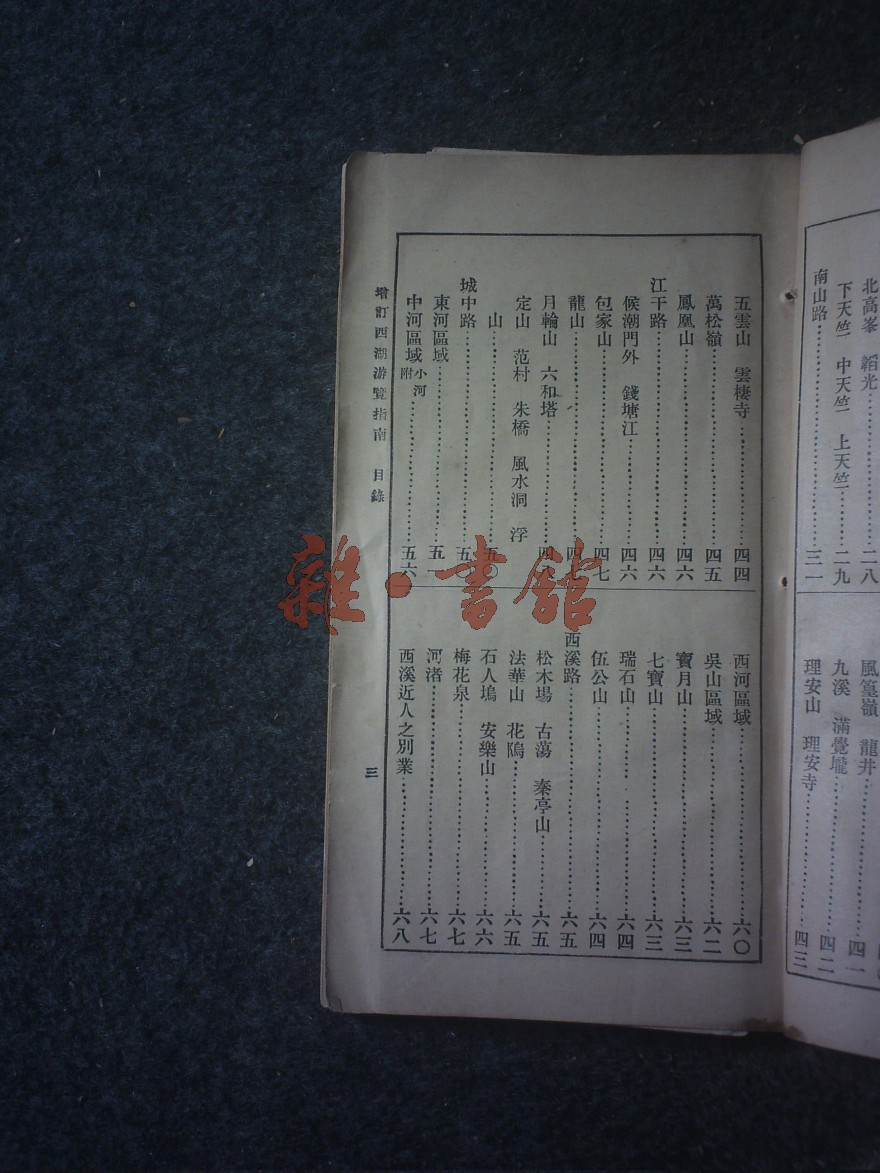 北高峯　韜光……二八
下天竺　中天竺　上天竺……二九
南山路……三一
風篁嶺　龍井……四一
九溪　滿覺壠……四二
理安山　理安寺……四三
五雲山　雲棲寺……四四
萬松嶺……四五
鳳凰山……四六
江干路……四六
候潮門外　錢塘江……四六
包家山……四七
龍山……四七
月輪山　六和塔……四八
定山　范村　朱橋　風水洞　浮
山……五〇
城中路……五〇
東河區域……五一
中河區域附小河……五六
西河區域……六〇
吳山區域……六二
寶月山……六三
七寶山……六三
瑞石山……六四
伍公山……六四
西溪路……六五
松木場　古蕩　秦亭山……六五
法華山　花隖……六五
石人塢　安樂山……六六
梅花泉……六七
河渚……六七
西溪近人之別業……六八
增訂西湖游覽指南　目錄
三
雜·書館